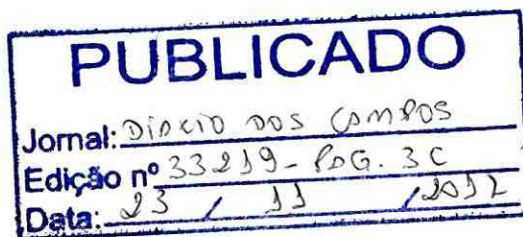 PUBLICADO
Jornal: DIÁRIO DOS CAMPOS
Edição nº 33219 - PAG. 3C
Data: 23 / 11 / 2012